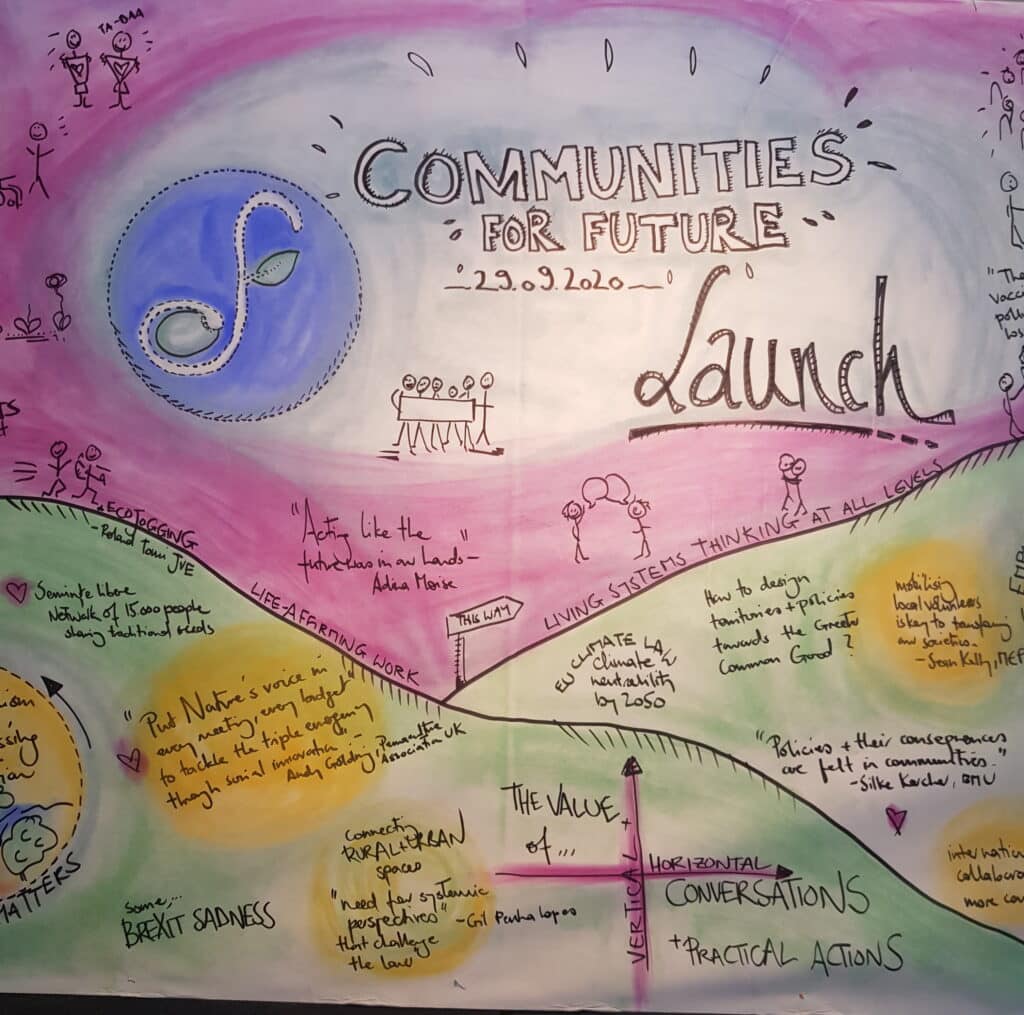 TA-DAA
COMMUNITIES
FOR FUTURE
29.09.2020
Launch
ECOJOGGING
- Poland Town JVE
"Acting like the
future was in our hands -
LIVING SYSTEMS THINKING AT ALL LEVELS
THIS WAY
LIFE-AFFIRMING WORK
Network of 15000 people
sharing traditional seeds
EU CLIMATE LAW
climate
neutrality
by 2050
How to design
territories + policies
towards the Greater
Common Good?
mobilising
local volunteers
is key to transforming
our societies.
"Put Nature's voice in
every meeting, every budget"
to tackle the triple emergency
through social innovation" -
Andy Goldring, Permaculture
Association UK
"Policies + their consequences
are felt in communities."
- Silke Karcher, BMU
THE VALUE
of...
VERTICAL +
HORIZONTAL
CONVERSATIONS
+ PRACTICAL ACTIONS
Connecting
RURAL + URBAN
spaces
"need for systemic
perspectives"
that challenge
the
some...
BREXIT SADNESS
MATTERS
more